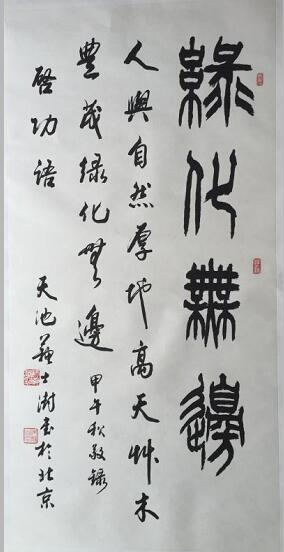 綠化無邊
人與自然厚地高天艸木
豐茂綠化無邊 甲午秋敬録
啓功語 天池蘇士澍書於北京